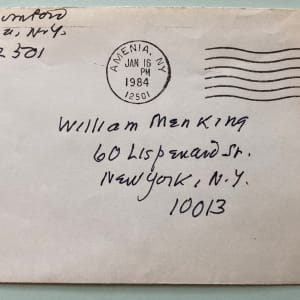 umford
a, N.Y.
2501
AMENIA, NY
JAN 16
PM
1984
12501
William Menking
60 Lispenard St.
New York, N.Y.
10013